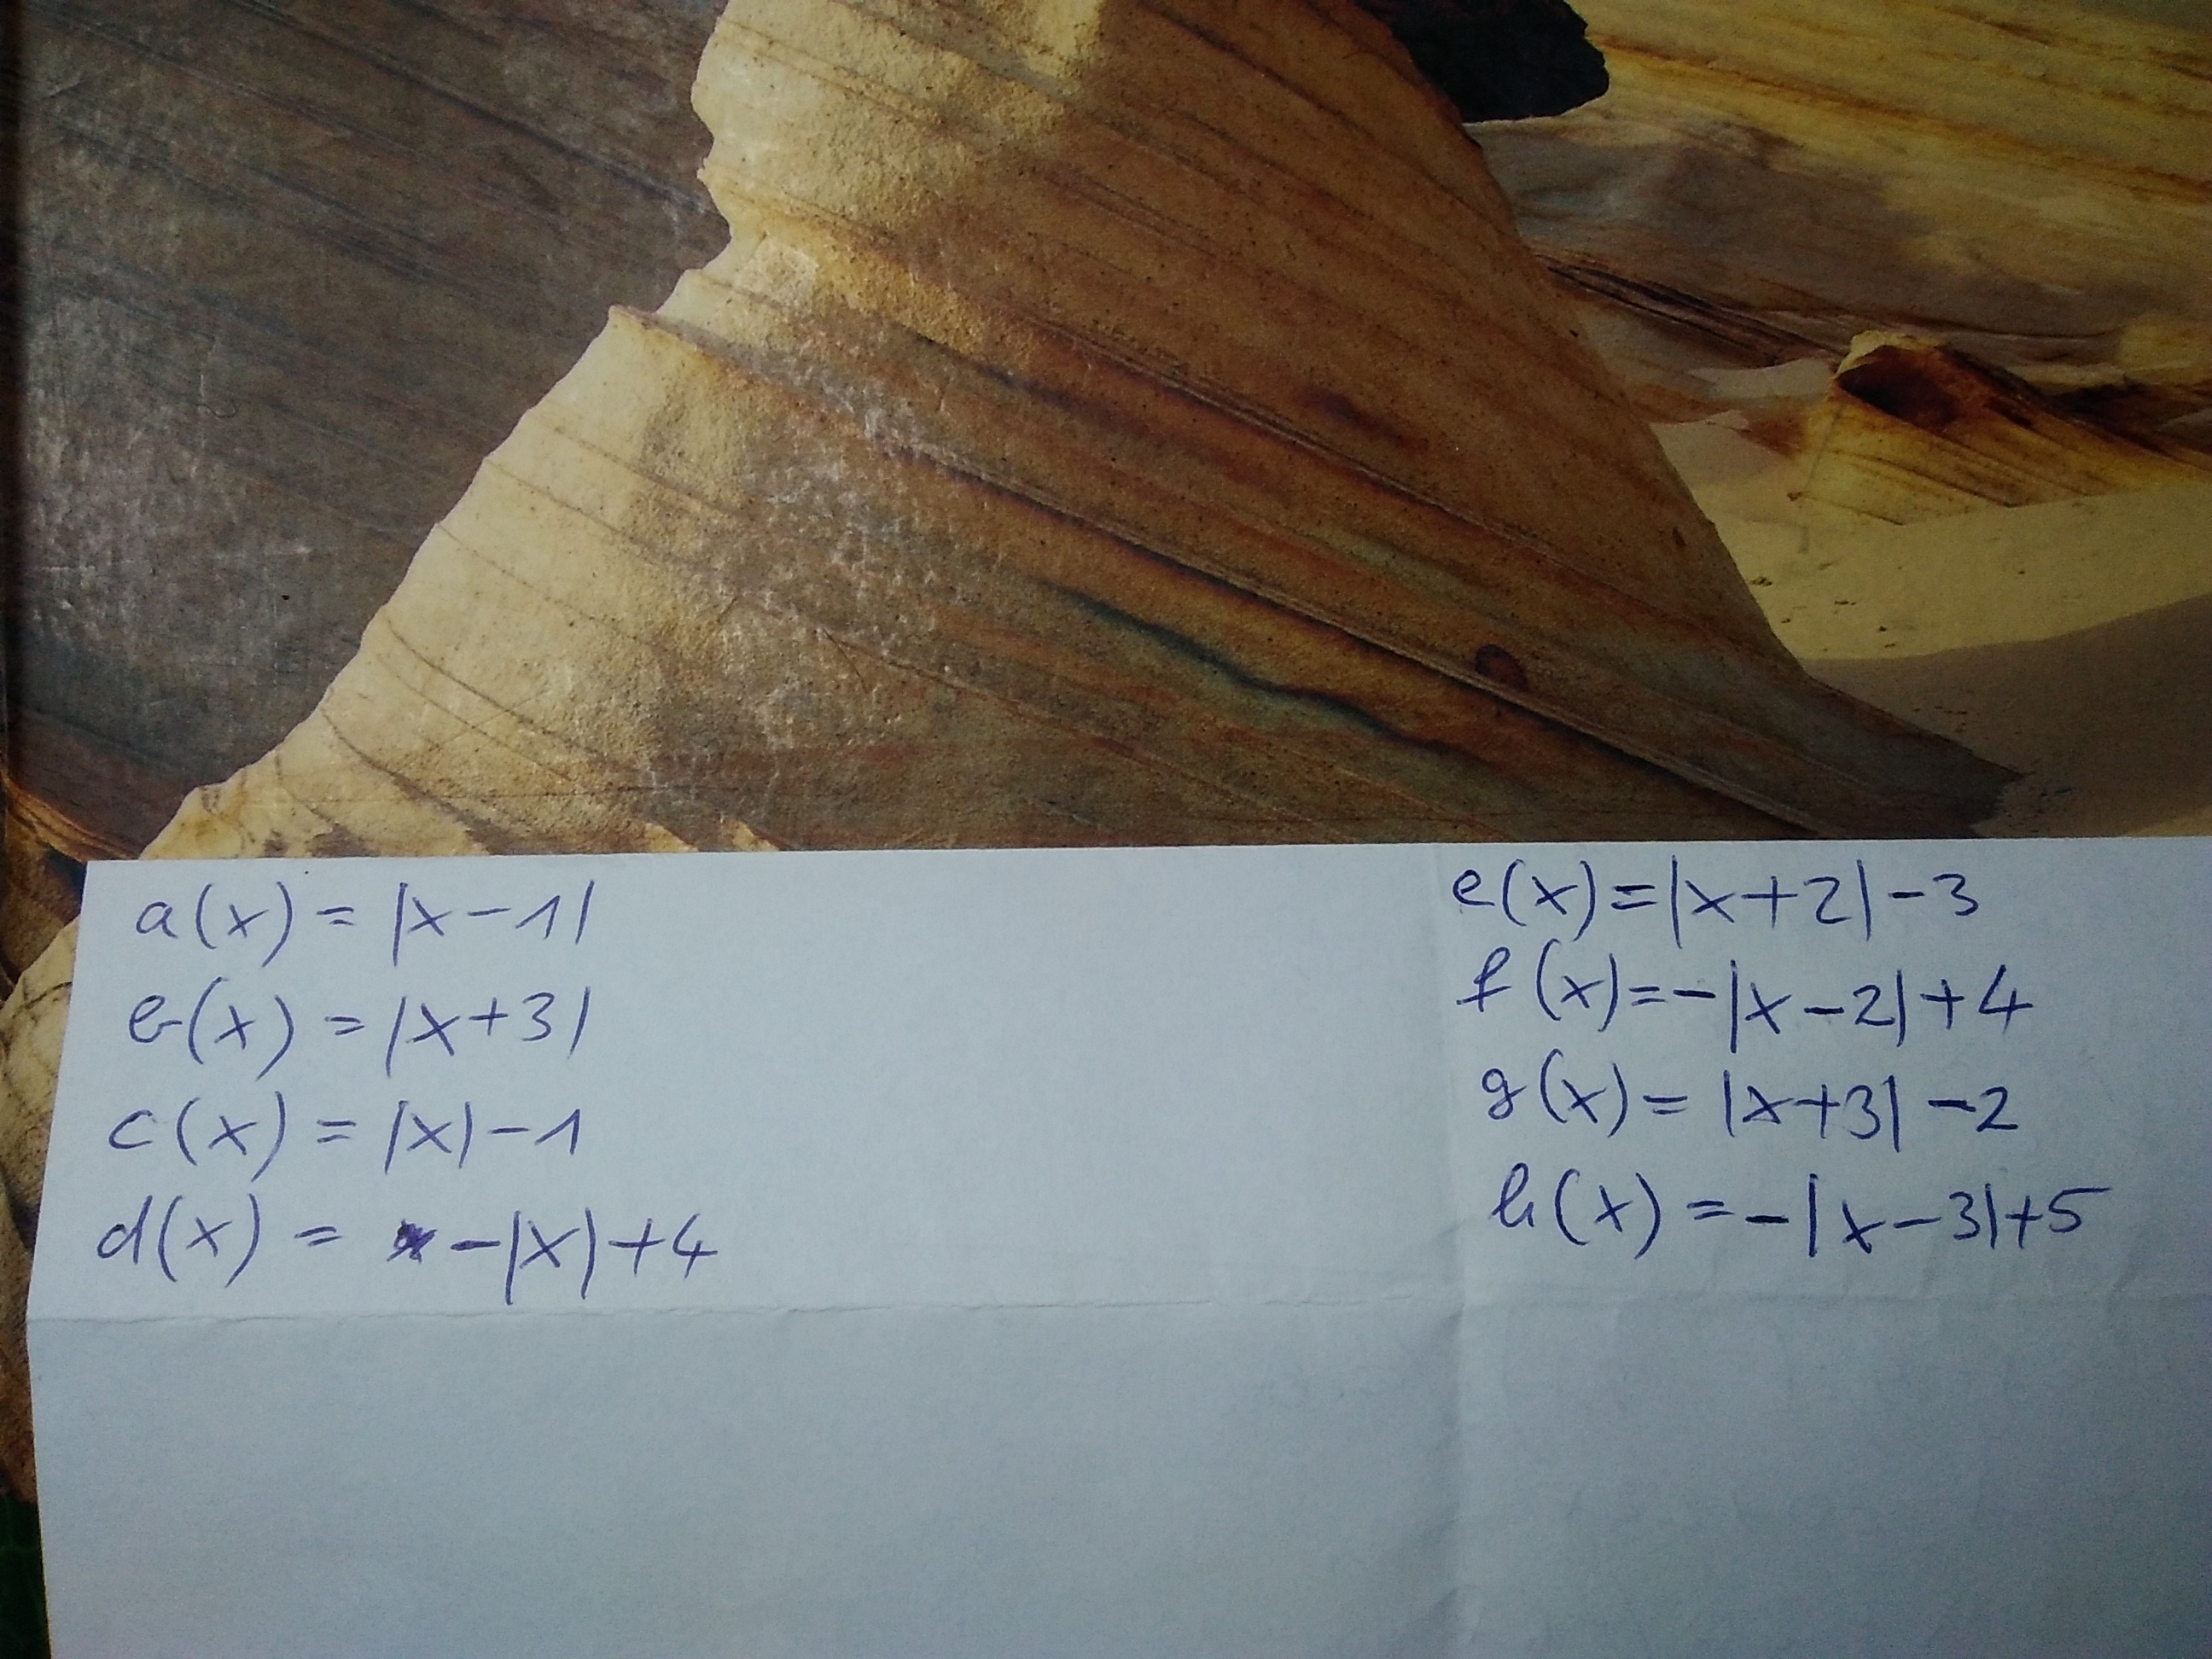 a(x) = |x-1|
b(x) = |x+3|
c(x) = |x|-1
d(x) = -|x|+4
e(x)=|x+2|-3
f(x)=-|x-2|+4
g(x)= |x+3|-2
h(x)=-|x-3|+5